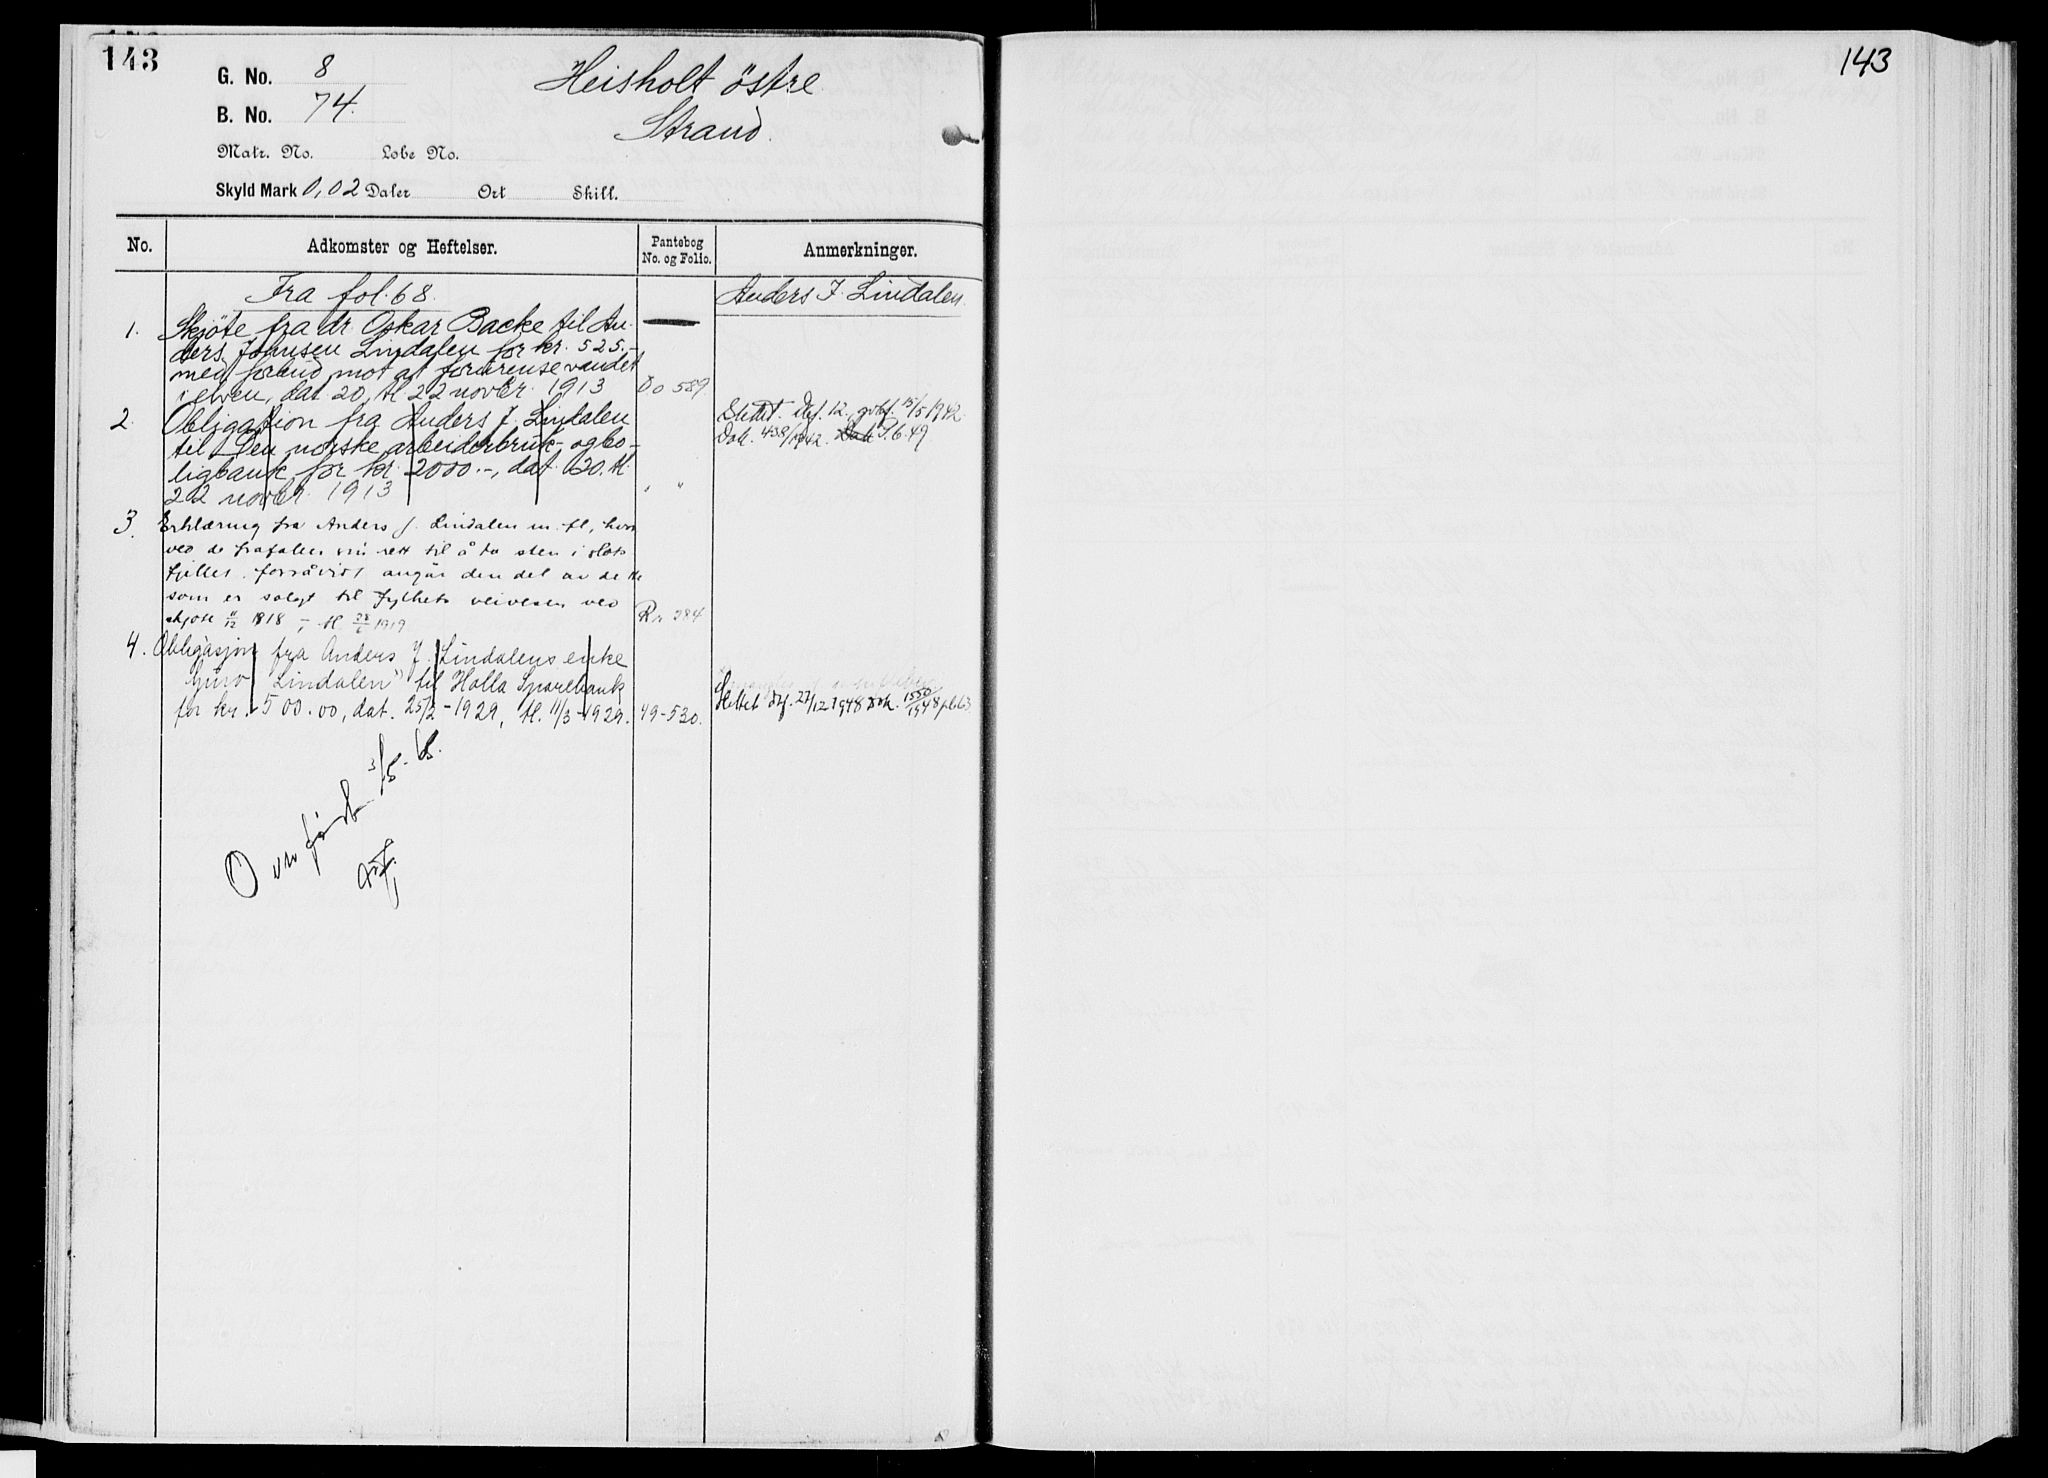 143
G. No. 8
B. No. 74.
Matr. No. Løbe No.
Skyld Mark 0,02 Daler Ort Skill.
Heisholt östre
Strand.
No. Adkomster og Heftelser. Pantebog No. og Folio. Anmerkninger.
Fra fol. 68.
Anders J. Lindalen.
1. Skjöte fra dr. Oskar Backe til An-
ders Johnsen Lindalen for kr. 525.-
med forbud mot at forurense vandet
i elven, dat 20, tl 22 novbr. 1913 Do 589.
2. Obligation fra Anders J. Lindalen
til Den norske arbeiderbruk- og bo-
ligbank for kr. 2000.-, dat. 20. tl.
22 novbr. 1913 " "
Slettet. 12. 15/5 1942.
Dok. 438/1942. Dok P.b. 49.
3. Erklæring fra Anders J. Lindalen m. fl, hvor
ved de frafalder sin rett til å ta sten i slots
fjellet, forsåvidt angår den del av dette
som er solgt til Fylkets veivesen ved
skjöte 11/12 1918 - tl 28/6 1919 284
4. Obligasjon fra Anders J. Lindalens enke
Guro Lindalen" til Holla Sparebank
for kr. 500.00, dat. 25/2-1929, tl. 11/3-1929. 49-530.
Slettet 27/12 1948 Dok. 1550/1948 pb 63
Overført 3/5-68.
143